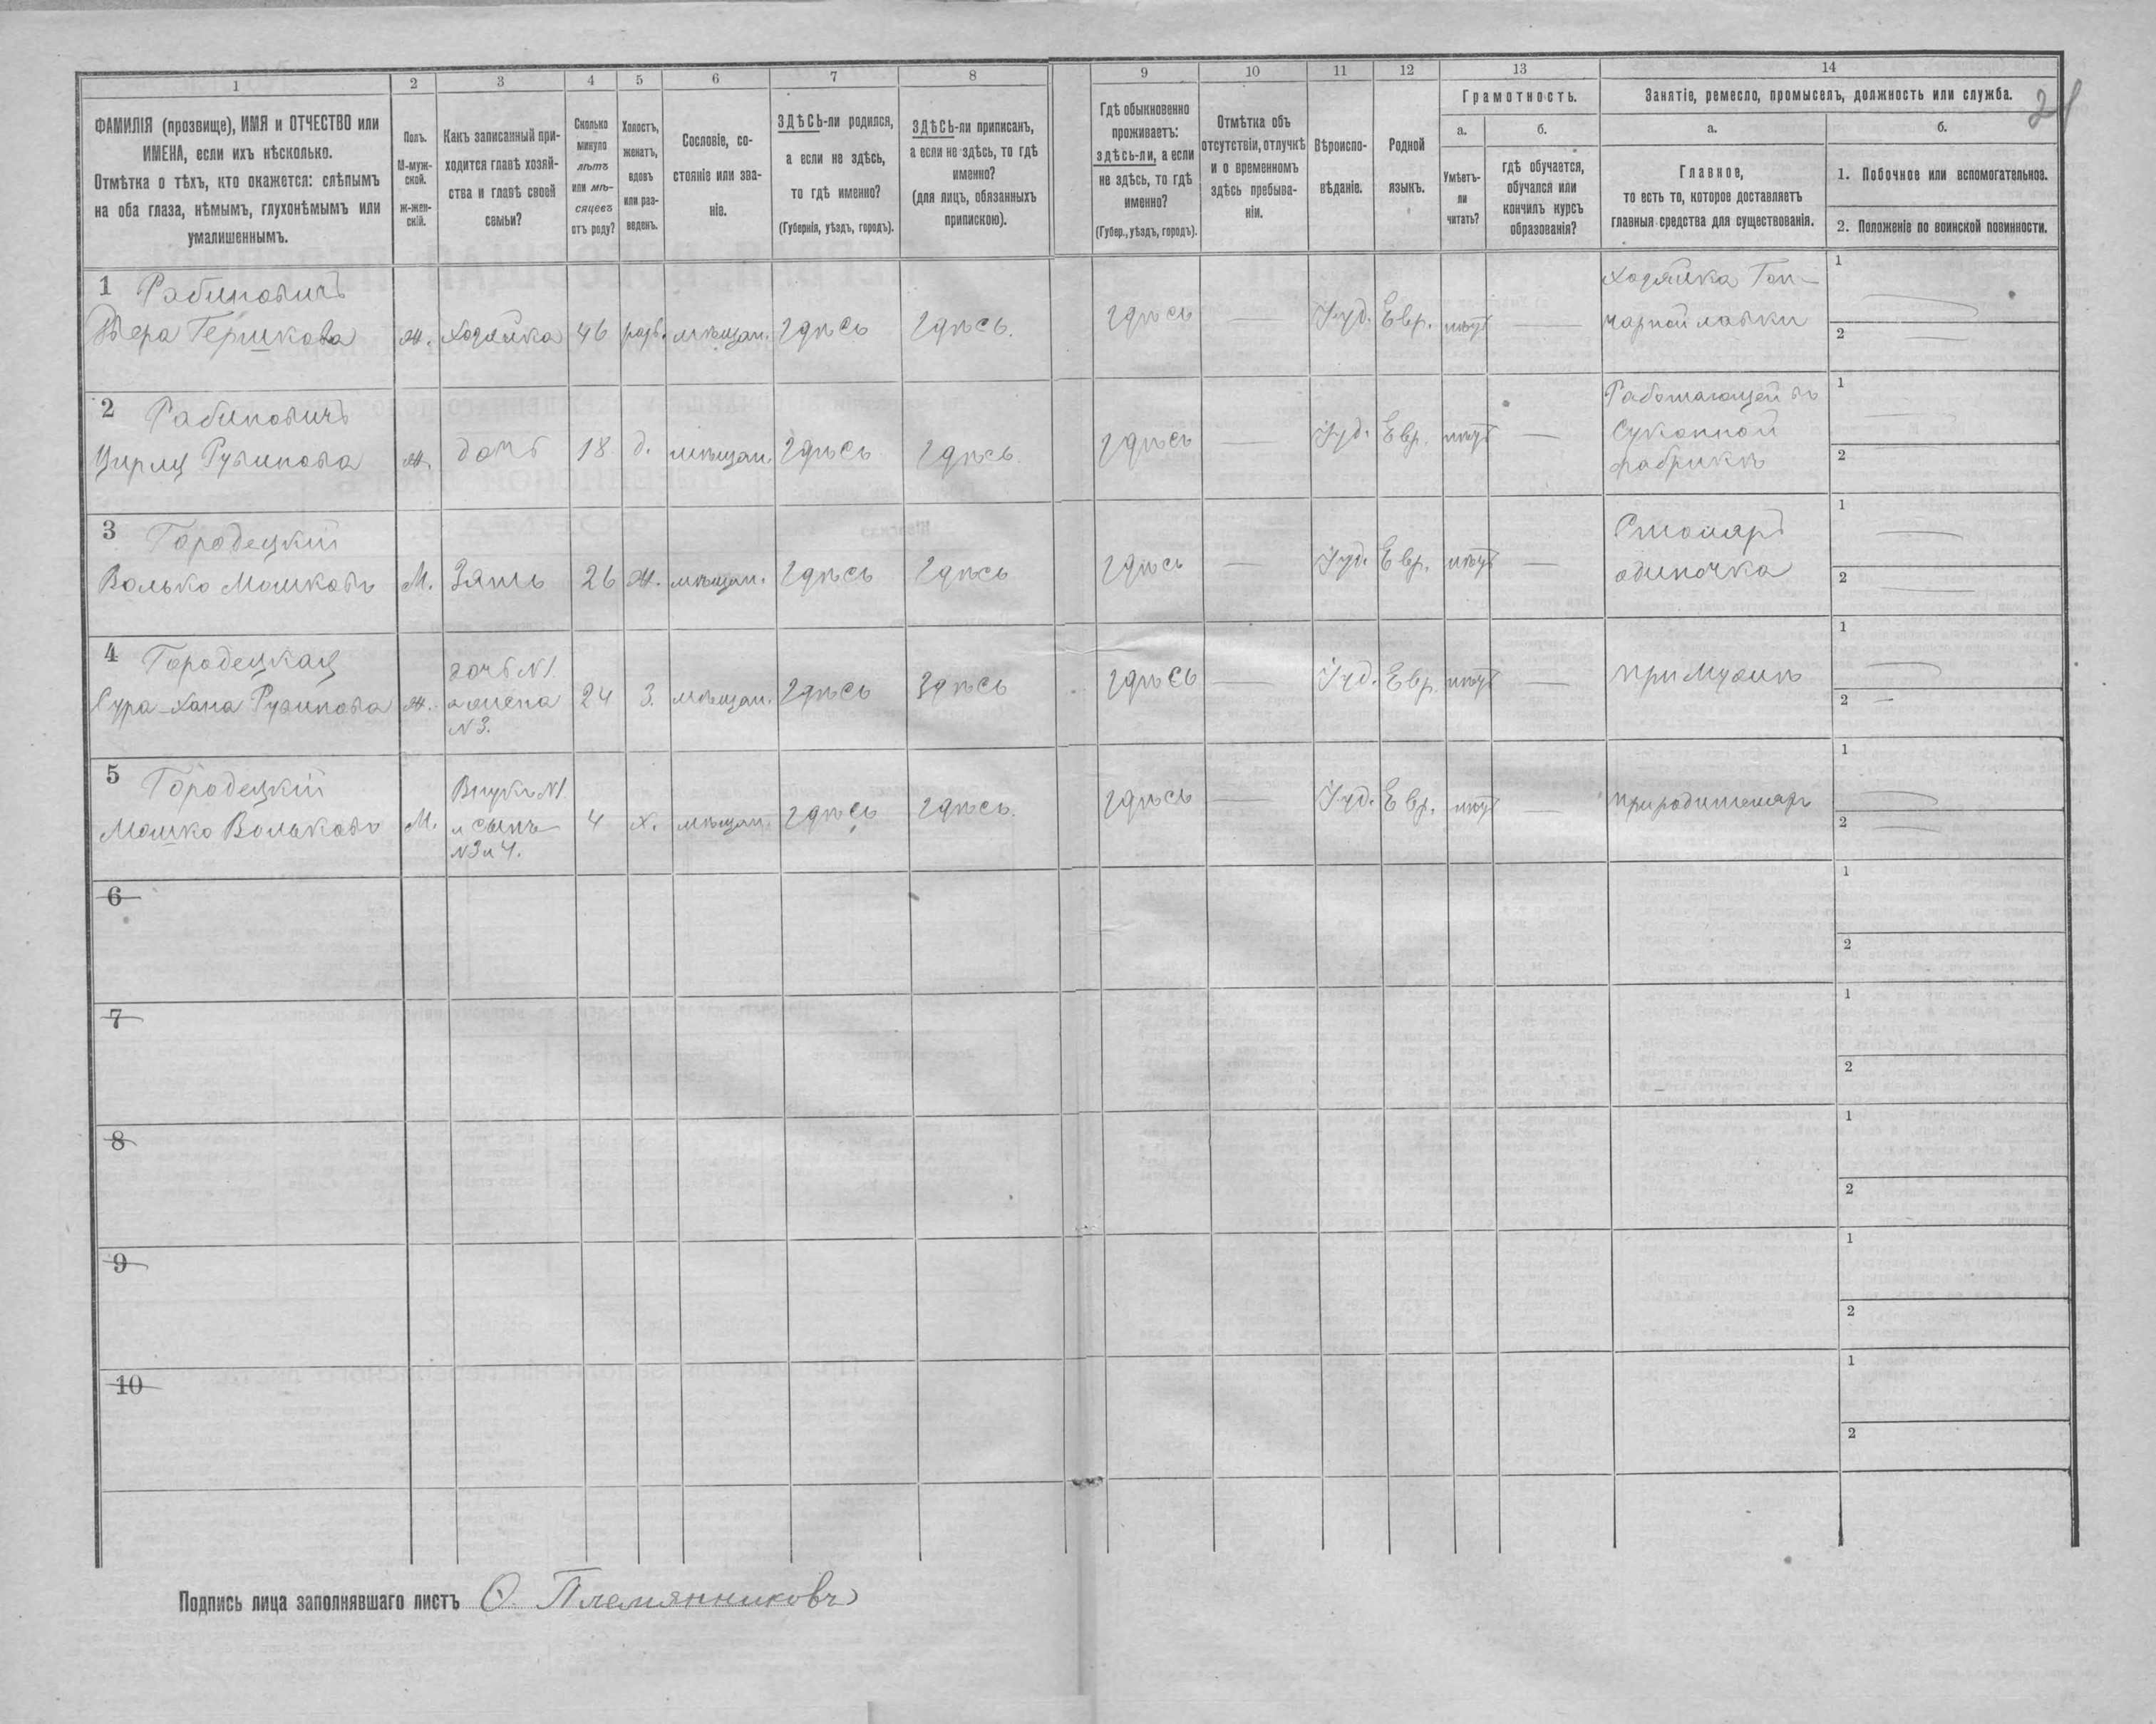 1 2 3 4 5 6 7 8 9 10 11 12 13 14
ФАМИЛІЯ (прозвище), ИМЯ и ОТЧЕСТВО или
ИМЕНА, если ихъ нѣсколько.
Отмѣтка о тѣхъ, кто окажется: слѣпымъ
на оба глаза, нѣмымъ, глухонѣмымъ или
умалишеннымъ.
Полъ.
М-муж-
ской.
Ж-жен-
скій.
Какъ записанный при-
ходится главѣ хозяй-
ства и главѣ своей
семьи?
Сколько
минуло
лѣтъ
или мѣ-
сяцевъ
отъ роду?
Холостъ,
женатъ,
вдовъ
или раз-
веденъ.
Сословіе, со-
стояніе или зва-
ніе.
ЗДѢСЬ-ли родился,
а если не здѣсь,
то гдѣ именно?
(Губернія, уѣздъ, городъ).
ЗДѢСЬ-ли приписанъ,
а если не здѣсь, то гдѣ
именно?
(для лицъ, обязанныхъ
припискою).
Гдѣ обыкновенно
проживаетъ:
здѣсь-ли, а если
не здѣсь, то гдѣ
именно?
(Губер., уѣздъ, городъ).
Отмѣтка объ
отсутствіи, отлучкѣ
и о временномъ
здѣсь пребыва-
ніи.
Вѣроиспо-
вѣданіе.
Родной
языкъ.
Грамотность.
а.
Умѣетъ-
ли
читать?
б.
гдѣ обучается,
обучался или
кончилъ курсъ
образованія?
Занятіе, ремесло, промыселъ, должность или служба.
а.
Главное,
то есть то, которое доставляетъ
главныя средства для существованія.
б.
1. Побочное или вспомогательное.
2. Положеніе по воинской повинности.
1 Рабиновичъ
Гершкова ж. хозяйка 46 разв. мѣщан. здѣсь здѣсь. здѣсь — Іуд. Евр. нѣтъ —
Хозяйка Гон-
чарной лавки
1 —
2 —
2 Рабиновичъ
Рувинова ж. дочь 18 д. мѣщан. здѣсь здѣсь здѣсь — Іуд. Евр. нѣтъ —
Работающей въ
Суконной
фабрикѣ
1 —
2 —
3 Городецкій
Волько Мошковъ М. Зять 26 ж. мѣщан. здѣсь здѣсь здѣсь — Іуд. Евр. нѣтъ —
Столяръ
одиночка
1 —
2 —
4 Городецкая
Сура-Хана Рувинова ж.
дочь N1.
а жена
N3.
24 З. мѣщан. здѣсь здѣсь здѣсь — Іуд. Евр. нѣтъ —
при мужѣ
1 —
2 —
5 Городецкій
Мошко Вольковъ М.
Внукъ N1.
и сынъ
N3 и 4.
4 х. мѣщан. здѣсь здѣсь. здѣсь — Іуд. Евр. нѣтъ —
при родителяхъ
1 —
2 —
6
1
2
7
1
2
8
1
2
9
1
2
10
1
2
Подпись лица заполнявшаго листъ Племянниковъ